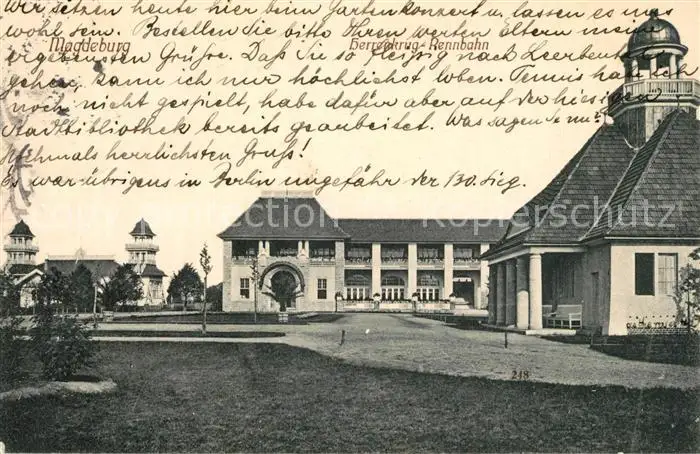 Wir setzen heute hier beim Gartenkonzert u. lassen es uns
wohl sein. Bestellen Sie bitte Ihren werten Eltern meine
Magdeburg
Herrenkrug-Rennbahn
ergebensten Grüße. Daß Sie so fleißig nach Leerbeutel
gehen, kann ich nur höchlichst loben. Tennis habe ich
noch nicht gespielt, habe dafür aber auf der hiesigen
Stadtbibliothek bereits gearbeitet. Was sagen Sie nu?
Nochmals herrlichsten Gruß!
Es war übrigens in Berlin ungefähr der 130. Sieg.
Copyright Schutz
248